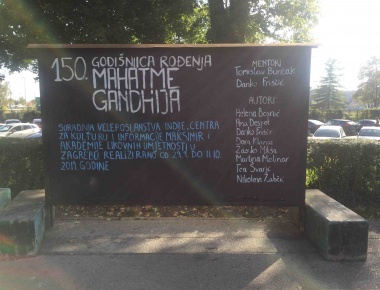 150. GODIŠNJICA ROĐENJA
MAHATME
GANDHIJA
SURADNJA VELEPOSLANSTVA INDIJE, CENTRA
ZA KULTURU I INFORMACIJE MAKSIMIR I
AKADEMIJE LIKOVNIH UMJETNOSTI U
ZAGREBU REALIZIRANO OD 29.9. DO 11.10.
2019. GODINE
MENTORI
Tomislav Buntak
Danko Friščić
AUTORI
Helena
Ana
Danko Friščić
Dora
Martina Molinar
Tea Švarić
Nikolina Žabčić